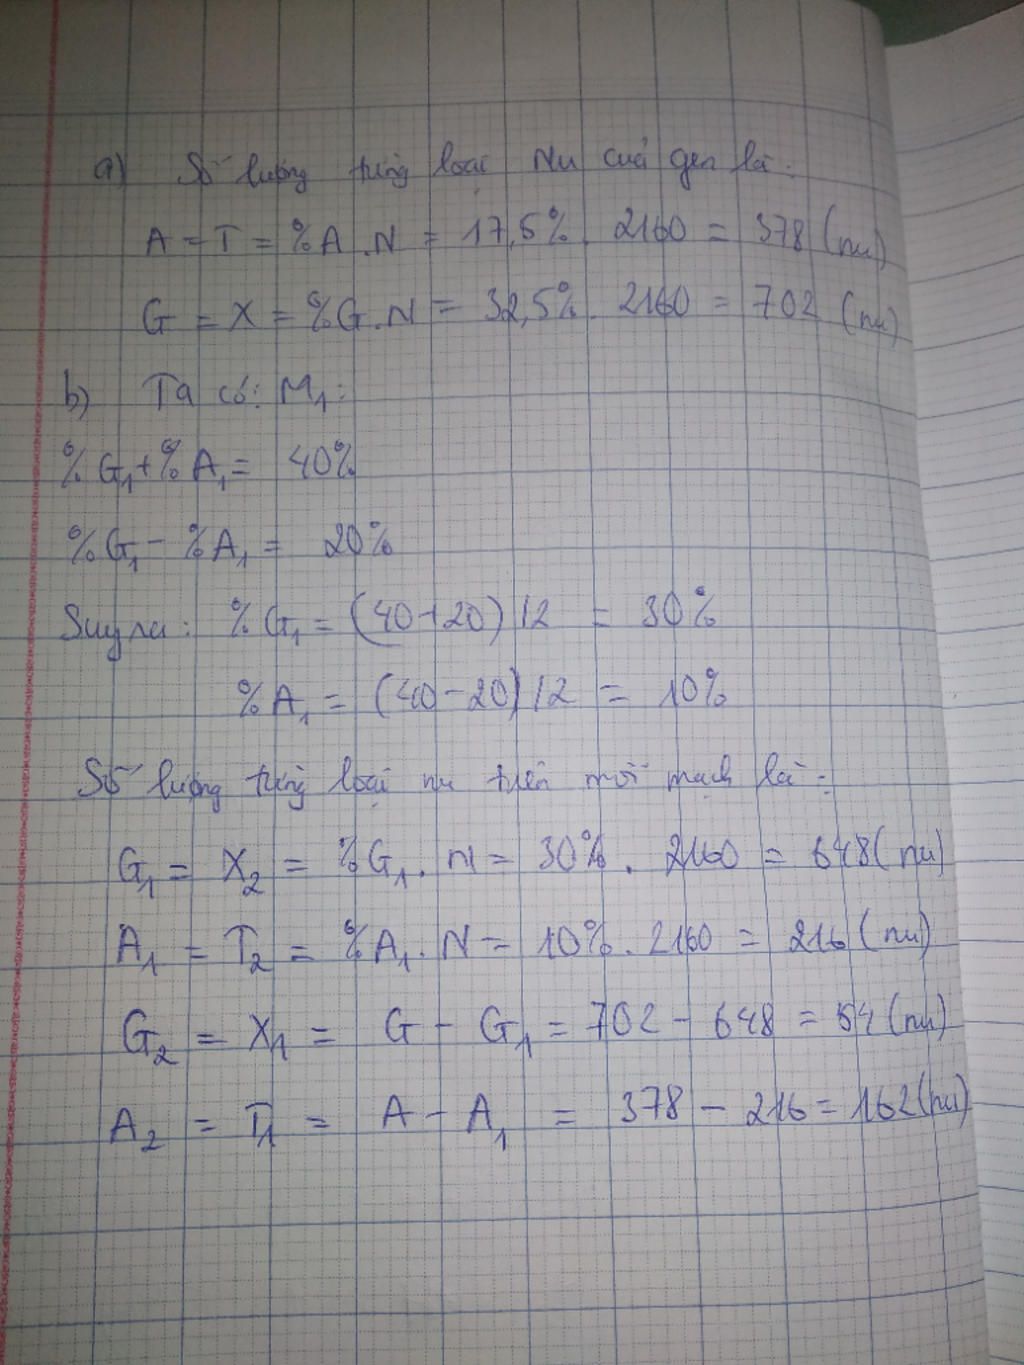 a) Số lượng từng loại Nu của gen là:
A = T = %A.N = 17,5%. 2160 = 378 (nu)
G = X = %G.N = 32,5%. 2160 = 702 (nu)
b) Ta có: M₁:
%G₁+%A₁= 40%
%G₁- %A₁ = 20%
Suy ra: %G₁ = (40+20)/2 = 30%
%A₁ = (40-20)/2 = 10%
Số lượng từng loại nu trên mỗi mạch là:
G₁ = X₂ = %G₁. N = 30%. 2160 = 648 (nu)
A₁ = T₂ = %A₁. N = 10%. 2160 = 216 (nu)
G₂ = X₁ = G - G₁ = 702 - 648 = 54 (nu)
A₂ = T₁ = A - A₁ = 378 - 216 = 162 (nu)